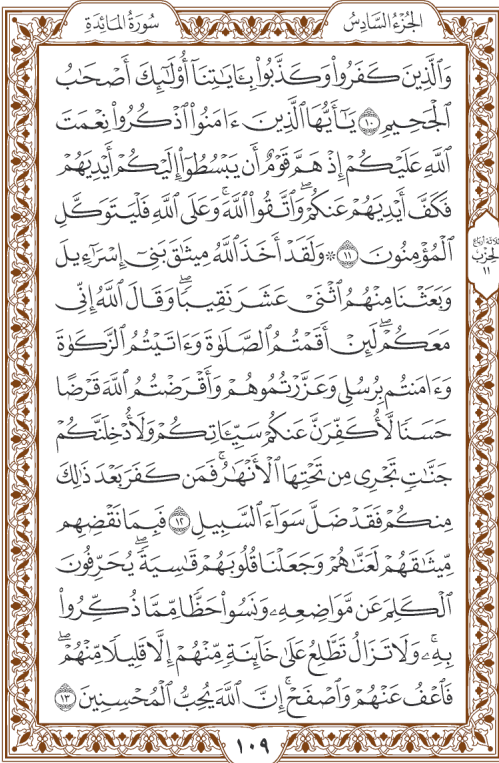 الجُزْءُ السَّادِسُ
سُورَةُ المَائِدَةِ
وَٱلَّذِينَ كَفَرُواْ وَكَذَّبُواْ بِـَٔايَٰتِنَآ أُوْلَٰٓئِكَ أَصْحَٰبُ
ٱلْجَحِيمِ ١٠ يَٰٓأَيُّهَا ٱلَّذِينَ ءَامَنُواْ ٱذْكُرُواْ نِعْمَتَ
ٱللَّهِ عَلَيْكُمْ إِذْ هَمَّ قَوْمٌ أَن يَبْسُطُوٓاْ إِلَيْكُمْ أَيْدِيَهُمْ
فَكَفَّ أَيْدِيَهُمْ عَنكُمْۖ وَٱتَّقُواْ ٱللَّهَۚ وَعَلَى ٱللَّهِ فَلْيَتَوَكَّلِ
ٱلْمُؤْمِنُونَ ١١ ۞ وَلَقَدْ أَخَذَ ٱللَّهُ مِيثَٰقَ بَنِيٓ إِسْرَٰٓءِيلَ
وَبَعَثْنَا مِنْهُمُ ٱثْنَيْ عَشَرَ نَقِيبٗاۖ وَقَالَ ٱللَّهُ إِنِّي
مَعَكُمْۖ لَئِنْ أَقَمْتُمُ ٱلصَّلَوٰةَ وَءَاتَيْتُمُ ٱلزَّكَوٰةَ
وَءَامَنتُم بِرُسُلِي وَعَزَّرْتُمُوهُمْ وَأَقْرَضْتُمُ ٱللَّهَ قَرْضًا
حَسَنٗا لَّأُكَفِّرَنَّ عَنكُمْ سَيِّـَٔاتِكُمْ وَلَأُدْخِلَنَّكُمْ
جَنَّٰتٖ تَجْرِي مِن تَحْتِهَا ٱلْأَنْهَٰرُۚ فَمَن كَفَرَ بَعْدَ ذَٰلِكَ
مِنكُمْ فَقَدْ ضَلَّ سَوَآءَ ٱلسَّبِيلِ ١٢ فَبِمَا نَقْضِهِم
مِّيثَٰقَهُمْ لَعَنَّٰهُمْ وَجَعَلْنَا قُلُوبَهُمْ قَٰسِيَةٗۖ يُحَرِّفُونَ
ٱلْكَلِمَ عَن مَّوَاضِعِهِۦ وَنَسُواْ حَظّٗا مِّمَّا ذُكِّرُواْ
بِهِۦۚ وَلَا تَزَالُ تَطَّلِعُ عَلَىٰ خَآئِنَةٖ مِّنْهُمْ إِلَّا قَلِيلٗا مِّنْهُمْۖ
فَٱعْفُ عَنْهُمْ وَٱصْفَحْۚ إِنَّ ٱللَّهَ يُحِبُّ ٱلْمُحْسِنِينَ ١٣
ثلاثة أرباع
الحِزْبِ
١١
١٠٩